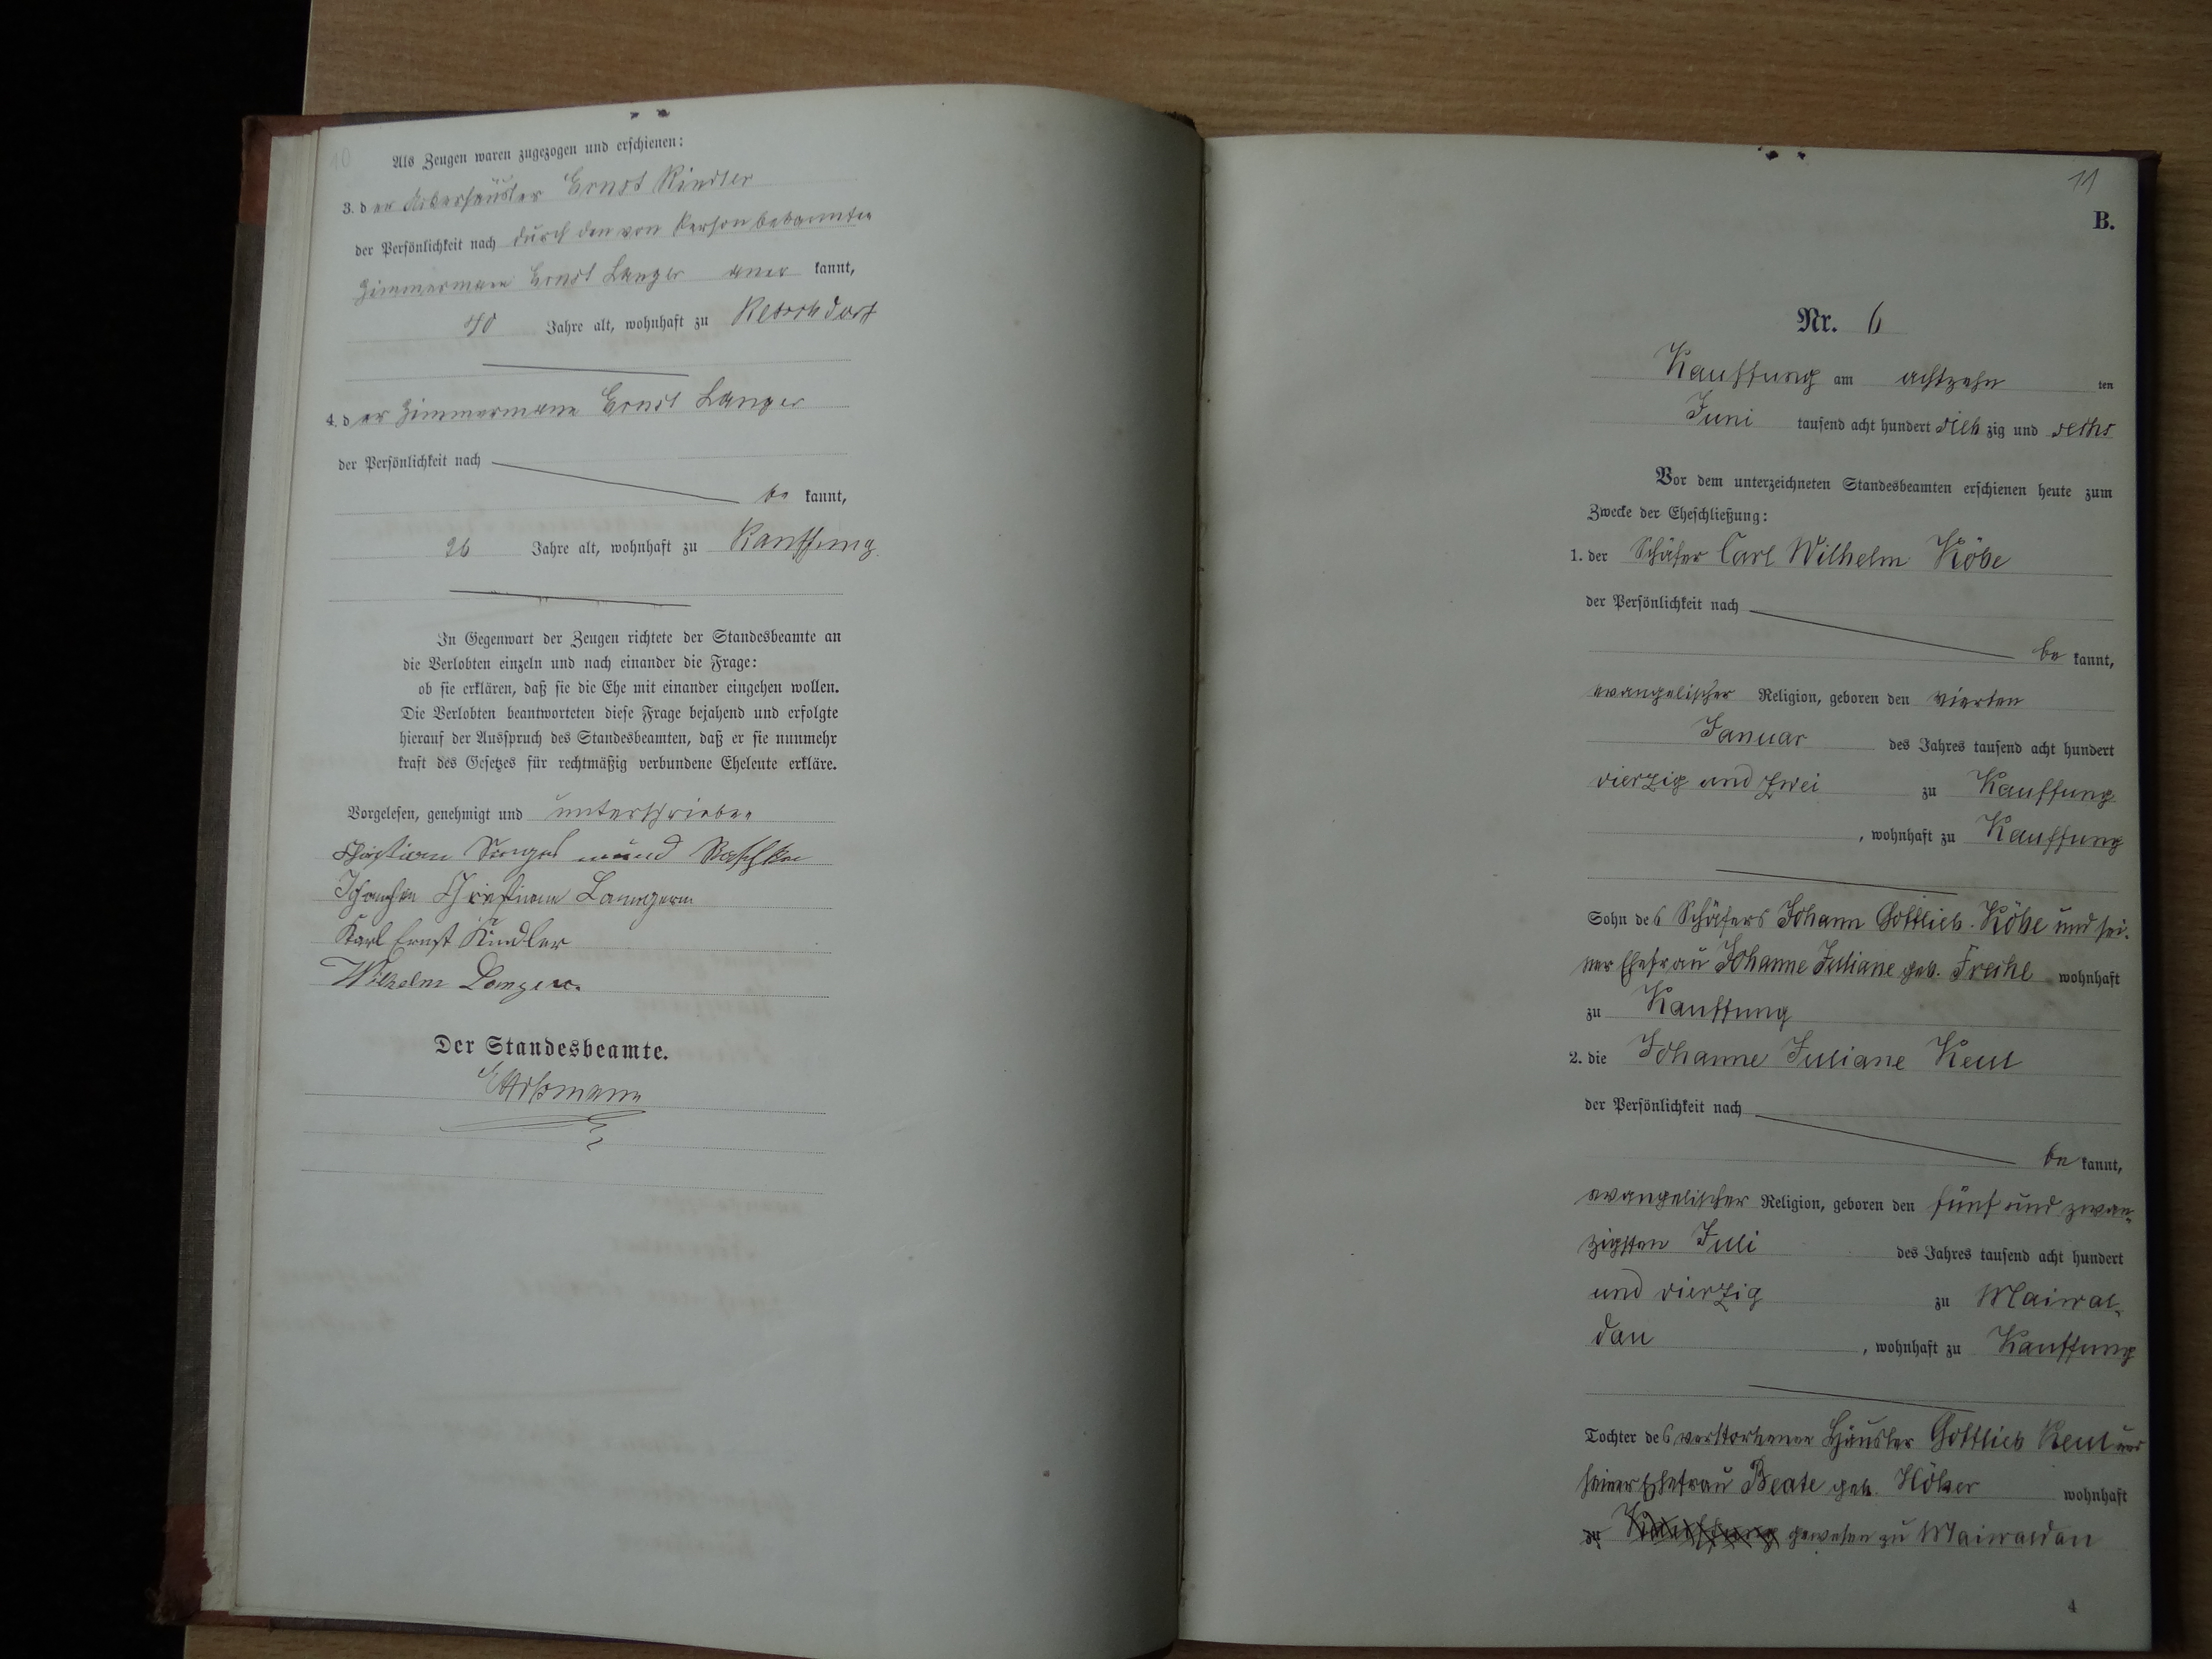 10
Als Zeugen waren zugezogen und erschienen:
3. der Ackerhäusler Ernst Kindler
der Persönlichkeit nach durch den von Person bekannten
Zimmermann Ernst Langer aner kannt,
40 Jahre alt, wohnhaft zu Ketschdorf
4. der Zimmermann Ernst Langer
der Persönlichkeit nach
be kannt,
26 Jahre alt, wohnhaft zu Kauffung
In Gegenwart der Zeugen richtete der Standesbeamte an
die Verlobten einzeln und nach einander die Frage:
ob sie erklären, daß sie die Ehe mit einander eingehen wollen.
Die Verlobten beantworteten diese Frage bejahend und erfolgte
hierauf der Ausspruch des Standesbeamten, daß er sie nunmehr
kraft des Gesetzes für rechtmäßig verbundene Eheleute erkläre.
Vorgelesen, genehmigt und unterschrieben
Christian
Christiane
Karl Ernst Kindler
Wilhelm Langer.
Der Standesbeamte.
11
B.
Nr. 6
Kauffung am achtzehn ten
Juni tausend acht hundert sieb zig und sechs
Vor dem unterzeichneten Standesbeamten erschienen heute zum
Zwecke der Eheschließung:
1. der Schäfer Carl Wilhelm Köbe
der Persönlichkeit nach
be kannt,
evangelischer Religion, geboren den vierten
Januar des Jahres tausend acht hundert
vierzig und zwei zu Kauffung
, wohnhaft zu Kauffung
Sohn des Schäfers Johann Gottlieb Köbe und sei-
ner Ehefrau Johanne Juliane geb. Freche wohnhaft
zu Kauffung
2. die Johanne Juliane Keul
der Persönlichkeit nach
be kannt,
evangelischer Religion, geboren den fünf und zwan-
zigsten Juli des Jahres tausend acht hundert
und vierzig zu Maiwal-
dau , wohnhaft zu Kauffung
Tochter des verstorbenen Häusler Gottlieb Keul und
seiner Ehefrau Beate geb. wohnhaft
zu Kauffung gewesen zu Maiwaldau
4